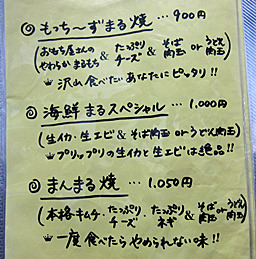 ◎ もっち〜ずまる焼 … 900円
(おもち屋さんの やわらかまるもち & たっぷり チーズ & そば 肉玉 or うどん 肉玉)
☆ 沢山食べたいあなたにピッタリ!!
◎ 海鮮まるスペシャル … 1,000円
(生イカ・生エビ & そば肉玉 or うどん肉玉)
☆ プリップリの生イカと生エビは絶品!!
◎ まんまる焼 … 1.050円
(本格キムチ・たっぷり チーズ・たっぷり ネギ & そば 肉玉 or うどん 肉玉)
☆ 一度食べたらやめられない味!!